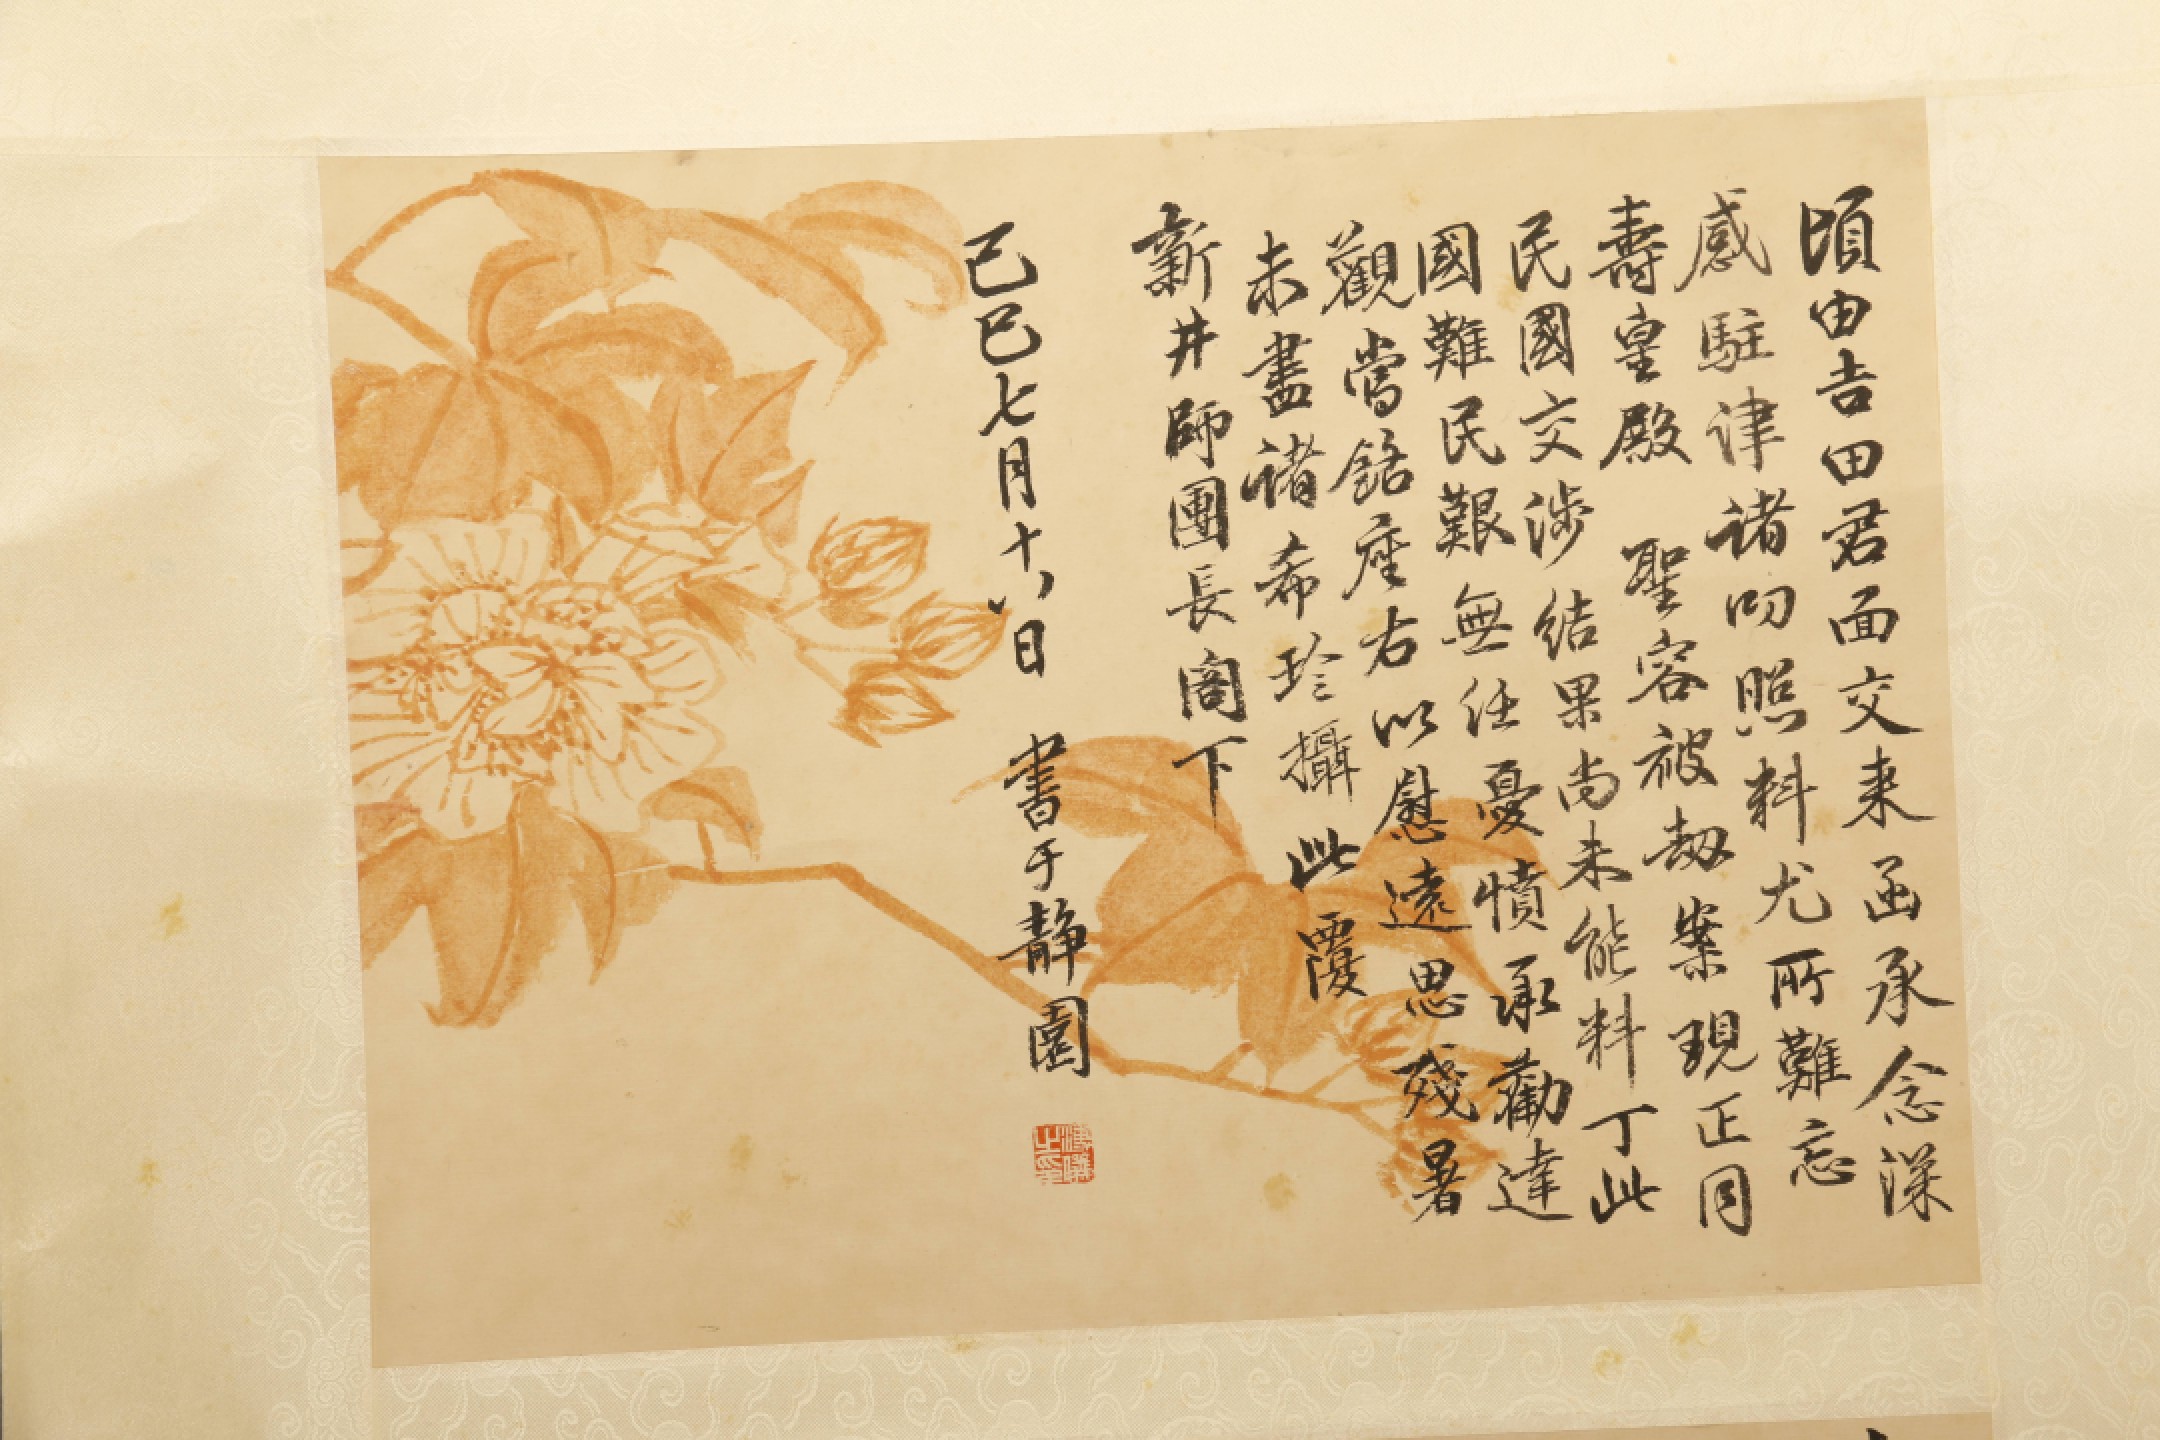 頃由吉田君面交来函承念深
感駐津諸叨照料尤所難忘
壽皇殿 聖容被劫案現正同
民國交涉結果尚未能料丁此
國難民艱無任憂憤承勸達
觀當銘座右以慰遠思殘暑
未盡諸希珍攝此覆
新井師團長閣下
己巳七月十八日 書于靜園
溥儀之印